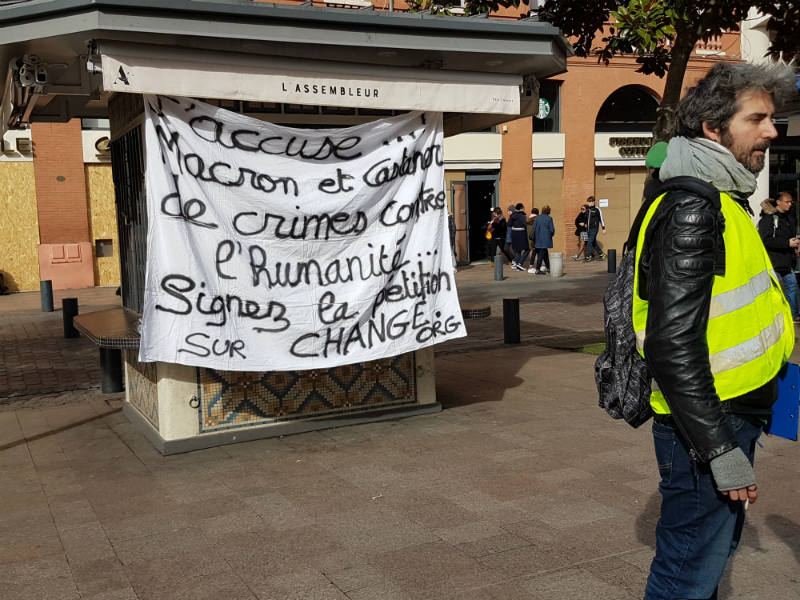 L'ASSEMBLEUR
J'accuse ...!
Macron et Castaner
de crimes contre
l'Humanité
Signez la pétition
SUR CHANGE.ORG